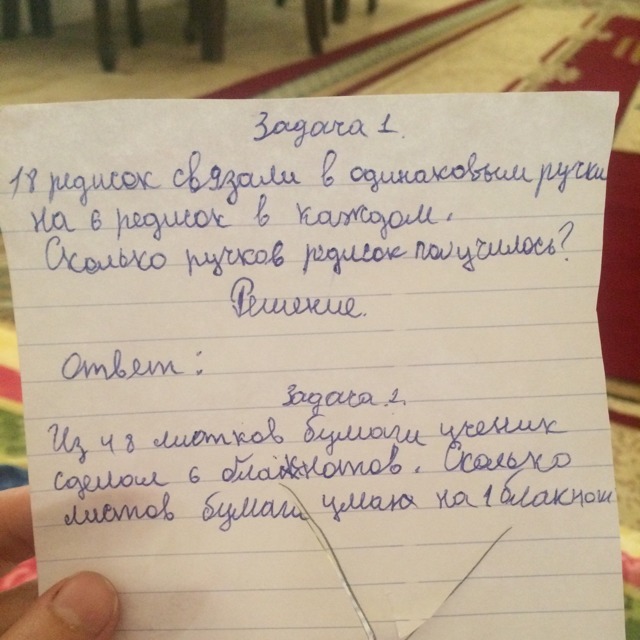 Задача 1.
18 редисок связали в одинаковым ручки
на 6 редисок в каждом.
Сколько ручков редисок получилось?
Решение.
Ответ:
Задача 2.
Из 48 листков бумаги ученик
сделал 6 блакнотов. Сколько
листов бумаги умаю на 1 блакнот